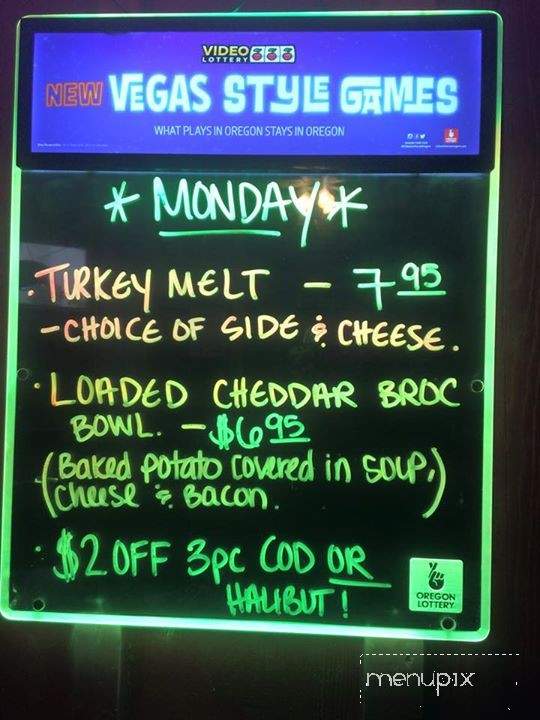 VIDEO
LOTTERY
NEW VEGAS STYLE GAMES
WHAT PLAYS IN OREGON STAYS IN OREGON
* MONDAY *
· TURKEY MELT - 7 95
- CHOICE OF SIDE & CHEESE.
· LOADED CHEDDAR BROC
BOWL. - $6 95
(Baked potato covered in soup,
cheese & Bacon.)
· $2 OFF 3pc COD OR
HALIBUT!
OREGON
LOTTERY
menupix